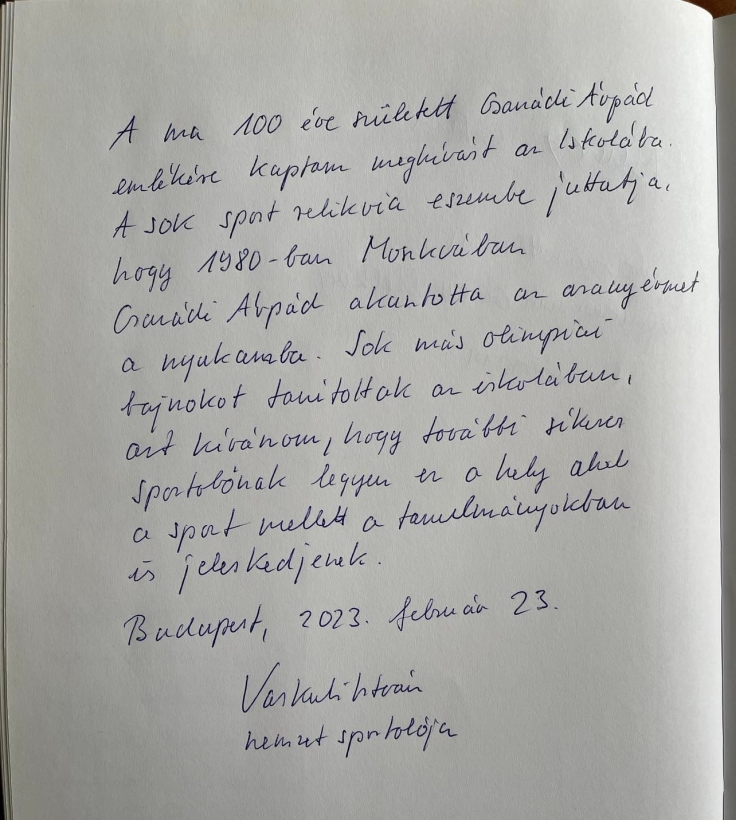 A ma 100 éve született Csanádi Árpád
emlékére kaptam meghívást az Iskolába.
A sok sport relikvia eszembe juttatja,
hogy 1980-ban Moszkvában
Csanádi Árpád akasztotta az aranyérmet
a nyakamba. Sok más olimpiai
bajnokot tanítottak az iskolában,
azt kívánom, hogy további sikeres
sportolónak legyen ez a hely ahol
a sport mellett a tanulmányokban
is jeleskedjenek.
Budapest, 2023. február 23.
Vaskuti István
nemzet sportolója